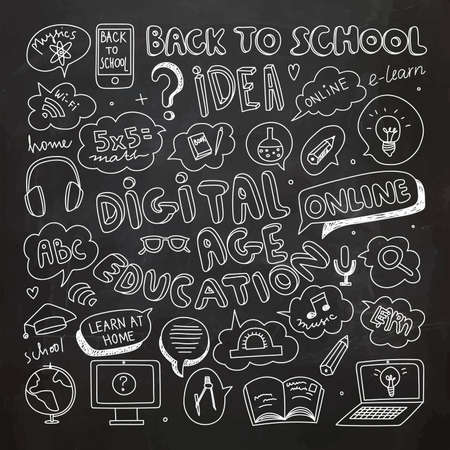 Physics
BACK
TO
SCHOOL
BACK TO SCHOOL
IDEA
?
ONLINE
e-learn
Wi-Fi
home
5x5=
math
DIGITAL
AGE
EDUCATION
ONLINE
ABC
LEARN AT
HOME
school
music
?